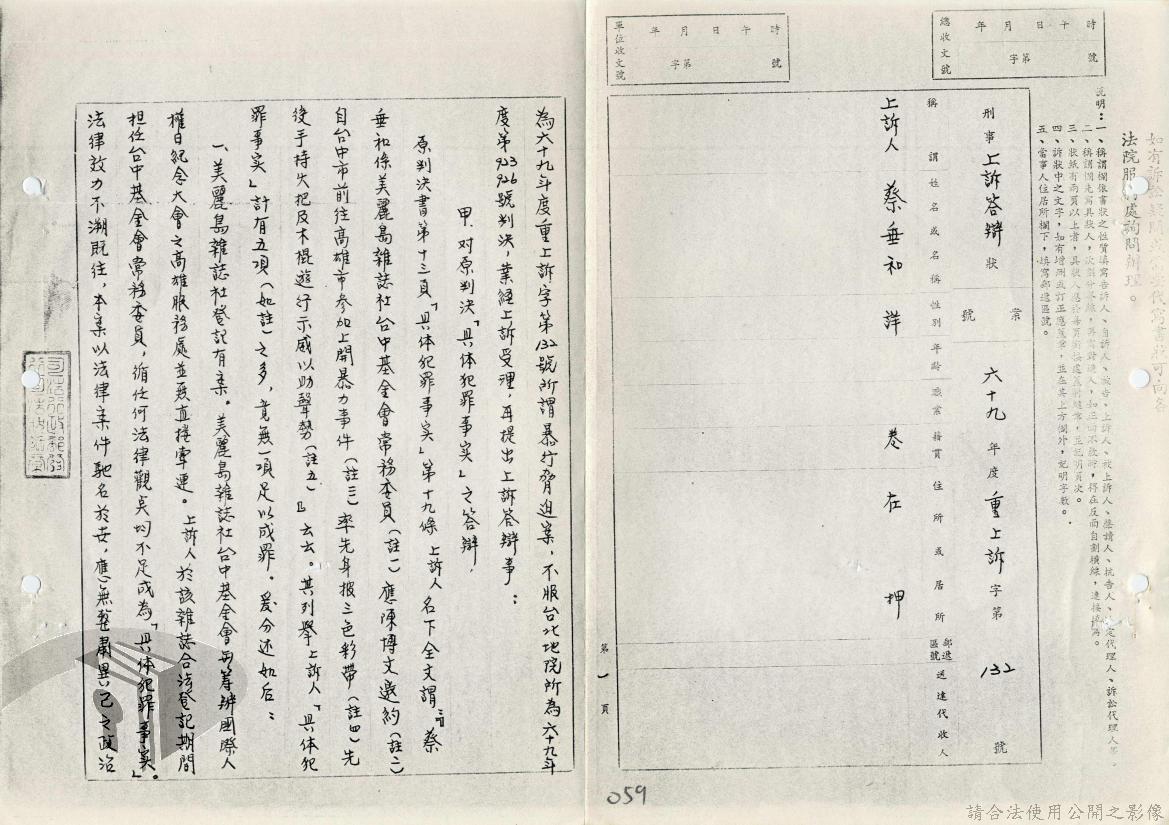 如有訴訟疑問或不會代寫書狀可向各
法院服務處詢問辦理。
說明：一、稱謂欄依書狀之性質填寫告訴人、自訴人、被告、上訴人、被上訴人、聲請人、抗告人、法定代理人、訴訟代理人等。
四、訴狀中之文字，如有增刪或訂正應蓋章，並在其上方欄外，記明字數。
五、當事人住居所欄下，填寫郵遞區號。
總收文號
年 月 日 午 時
字第 號
單位收文號
年 月 日 午 時
字第 號
刑事上訴答辯狀
案號
六十九年度重上訴字第132號
稱謂
姓名或名稱
性別
年齡
職業
籍貫
住所或居所
郵遞區號
送達代收人
上訴人 蔡垂和 詳卷 在押
第1頁
為六十九年度重上訴字第132號所謂暴行脅迫案，不服台北地院所為六十九年
度第923 926號判決，業經上訴受理，再提出上訴答辯事：
甲、对原判決「具体犯罪事实」之答辯．
原判決書第十三頁「具体犯罪事实」第十九條 上訴人名下全文謂『蔡
垂和係美麗島雜誌社台中基金會常務委員（註一）應陳博文邀約（註二）
自台中市前往高雄市參加上開暴力事件（註三）率先身披三色彩帶（註四）先
後手持火把及木棍遊行示威以助聲勢（註五）』云云。其列舉上訴人「具体犯
罪事实」計有五項（如註）之多，竟無一項足以成罪。爰分述如后：
一、美麗島雜誌社登記有案。美麗島雜誌社台中基金會與籌辦國際人
權日紀念大會之高雄服務處並無直接牽連。上訴人於該雜誌合法登記期間
担任台中基金會常務委員，循任何法律觀点均不足成為「具体犯罪事实」。
法律效力不溯既往，本案以法律案件馳名於世，應無整肅異己之政治
059
請合法使用公開之影像